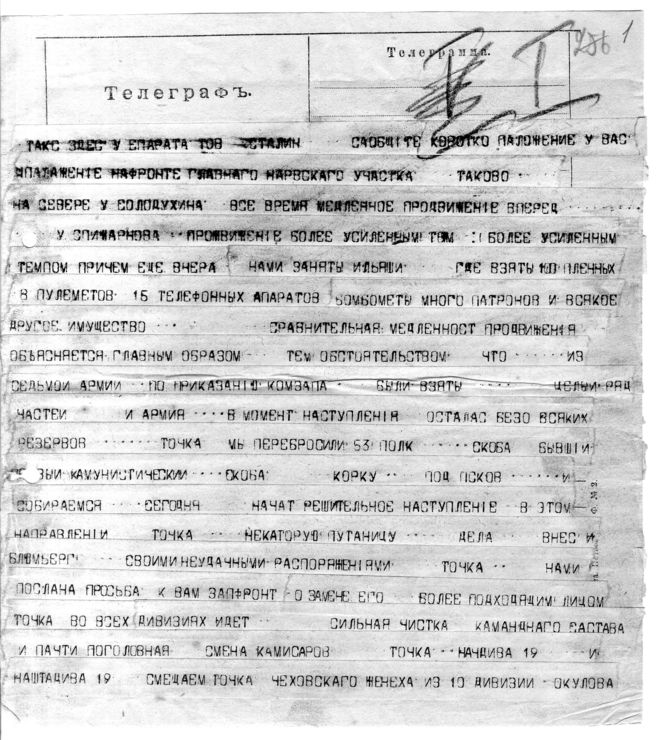 286 1
Телеграмма.
Телеграфъ.
ТАКС ЗДЕС У ЕПАРАТА ТОВ СТАЛИН САОБЩІТЕ КОВОТКО ПАЛОЖЕНИЕ У ВАС
ПАЛАЖЕНІЕ НАФРОНТЕ ГЛАВНАГО НАРВСКАГО УЧАСТКА ТАКОВО
НА СЕВЕРЕ У СОЛОДУХИНА ВСЕ ВРЕМЯ МЕДЛЕННОЕ ПРОДВИЖЕНІЕ ВПЕРЕД
У ПРОЖВИЖЕНІЕ БОЛЕЕ УСИЛЕННЫМ ТЯМ :: БОЛЕЕ УСИЛЕННЫМ
ТЕМПОМ ПРИЧЕМ ЕЩЕ ВЧЕРА НАМИ ЗАНЯТЫ ИЛЬЯШИ ГДЕ ВЗЯТЫ ПЛЕННЫХ
8 ПУЛЕМЕТОВ 15 ТЕЛЕФОННЫХ АПАРАТОВ БОМБОМЕТЫ МНОГО ПАТРОНОВ И ВСЯКОЕ
ДРУГОЕ ИМУЩЕСТВО СРАВНИТЕЛЬНАЯ МЕДЛЕННОСТ ПРОДВИЖЕНІЯ
ОБЪЯСНЯЕТСЯ ГЛАВНЫМ ОБРАЗОМ ТЕМ ОБСТОЯТЕЛЬСТВОМ ЧТО ИЗ
СЕДЬМОЙ АРМИИ ПО ПРИКАЗАНІЮ КОМЗАПА БЫЛИ ВЗЯТЫ ЦЕЛЫЙ РЯД
ЧАСТЕЙ И АРМИЯ В МОМЕНТ НАСТУПЛЕНІЯ ОСТАЛАС БЕЗО ВСЯКИХ
РЕЗЕРВОВ ТОЧКА МЫ ПЕРЕБРОСИЛИ 53 ПОЛК СКОБА БЫВШІЙ
КАМУНИСТИЧЕСКИЙ СКОБА КОРКУ ПОД ПСКОВ И
СОБИРАЕМСЯ СЕГОДНЯ НАЧАТ РЕШІТЕЛЬНОЕ НАСТУПЛЕНІЕ В ЭТОМ
НАПРАВЛЕНІИ ТОЧКА НЕКАТОРУЮ ПУТАНИЦУ ДЕЛА ВНЕС И
БЛЮМБЕРГ СВОИМИ НЕУДАЧНЫМИ РАСПОРЯЖЕНІЯМИ ТОЧКА НАМИ
ПОСЛАНА ПРОСЬБА К ВАМ ЗАПФРОНТ О ЗАМЕНЕ ЕГО БОЛЕЕ ПОДХОДЯЩИМ ЛИЦОМ
ТОЧКА ВО ВСЕХ ДИВИЗИЯХ ИДЕТ СИЛЬНАЯ ЧИСТКА КАМАНДНАГО САСТАВА
И ПАЧТИ ПОГОЛОВНАЯ СМЕНА КАМИСАРОВ ТОЧКА НАЧДИВА 19 И
НАШТАДИВА 19 СМЕЩАЕМ ТОЧКА ЧЕХОВСКАГО ЖЕНЕХА ИЗ 10 ДИВИЗИИ ОКУЛОВА